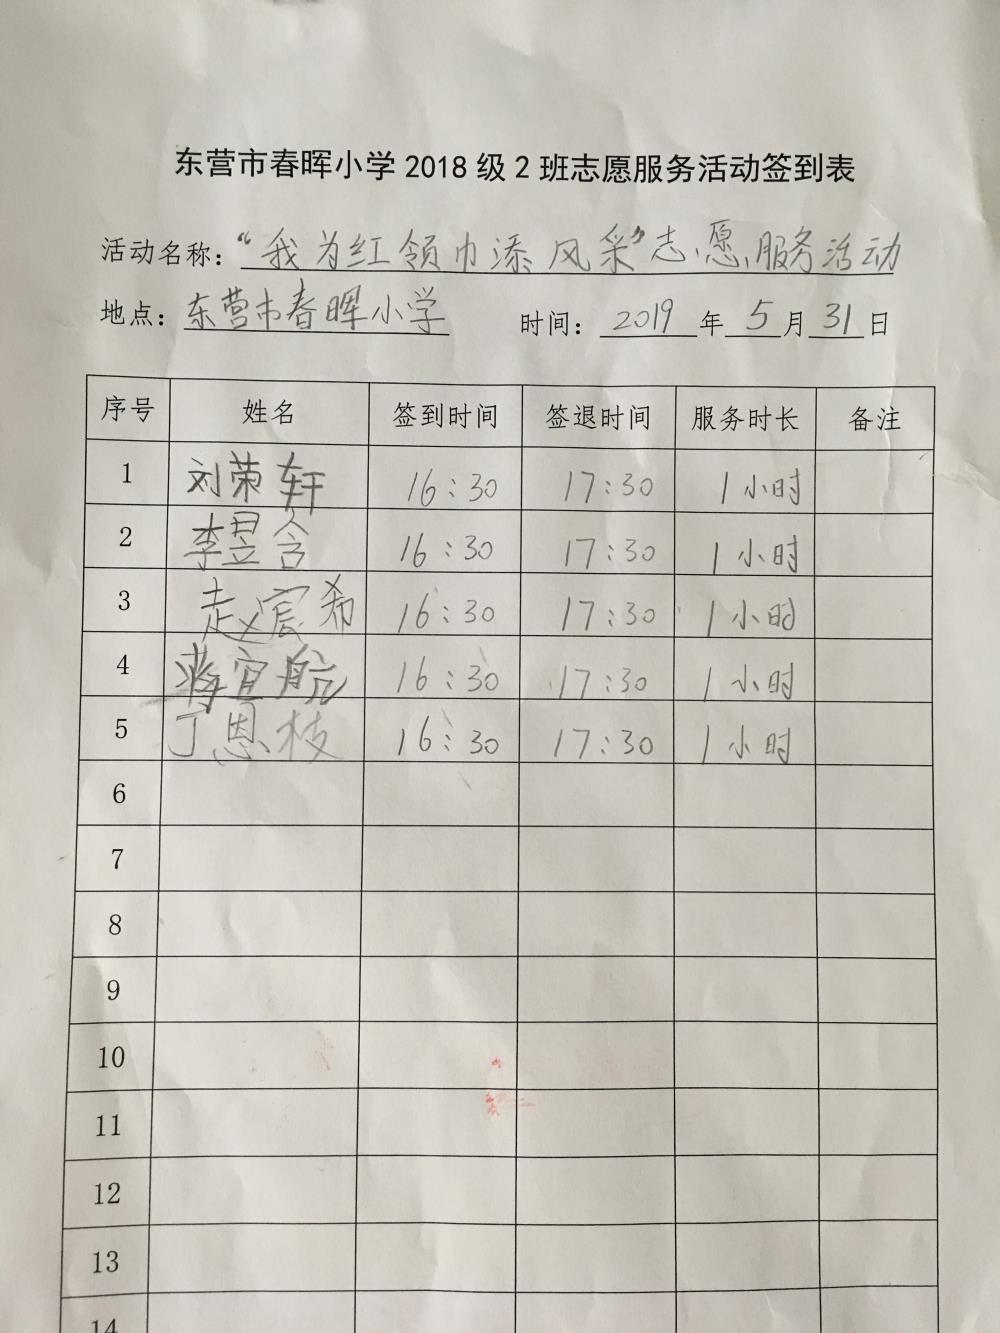 东营市春晖小学2018级2班志愿服务活动签到表
活动名称：“我为红领巾添风采”志愿服务活动
地点：东营市春晖小学 时间：2019年5月31日
序号 姓名 签到时间 签退时间 服务时长 备注
1 刘荣轩 16:30 17:30 1小时
2 李昱含 16:30 17:30 1小时
3 赵宸希 16:30 17:30 1小时
4 蒋宜航 16:30 17:30 1小时
5 丁恩枝 16:30 17:30 1小时
6
7
8
9
10
11
12
13
14